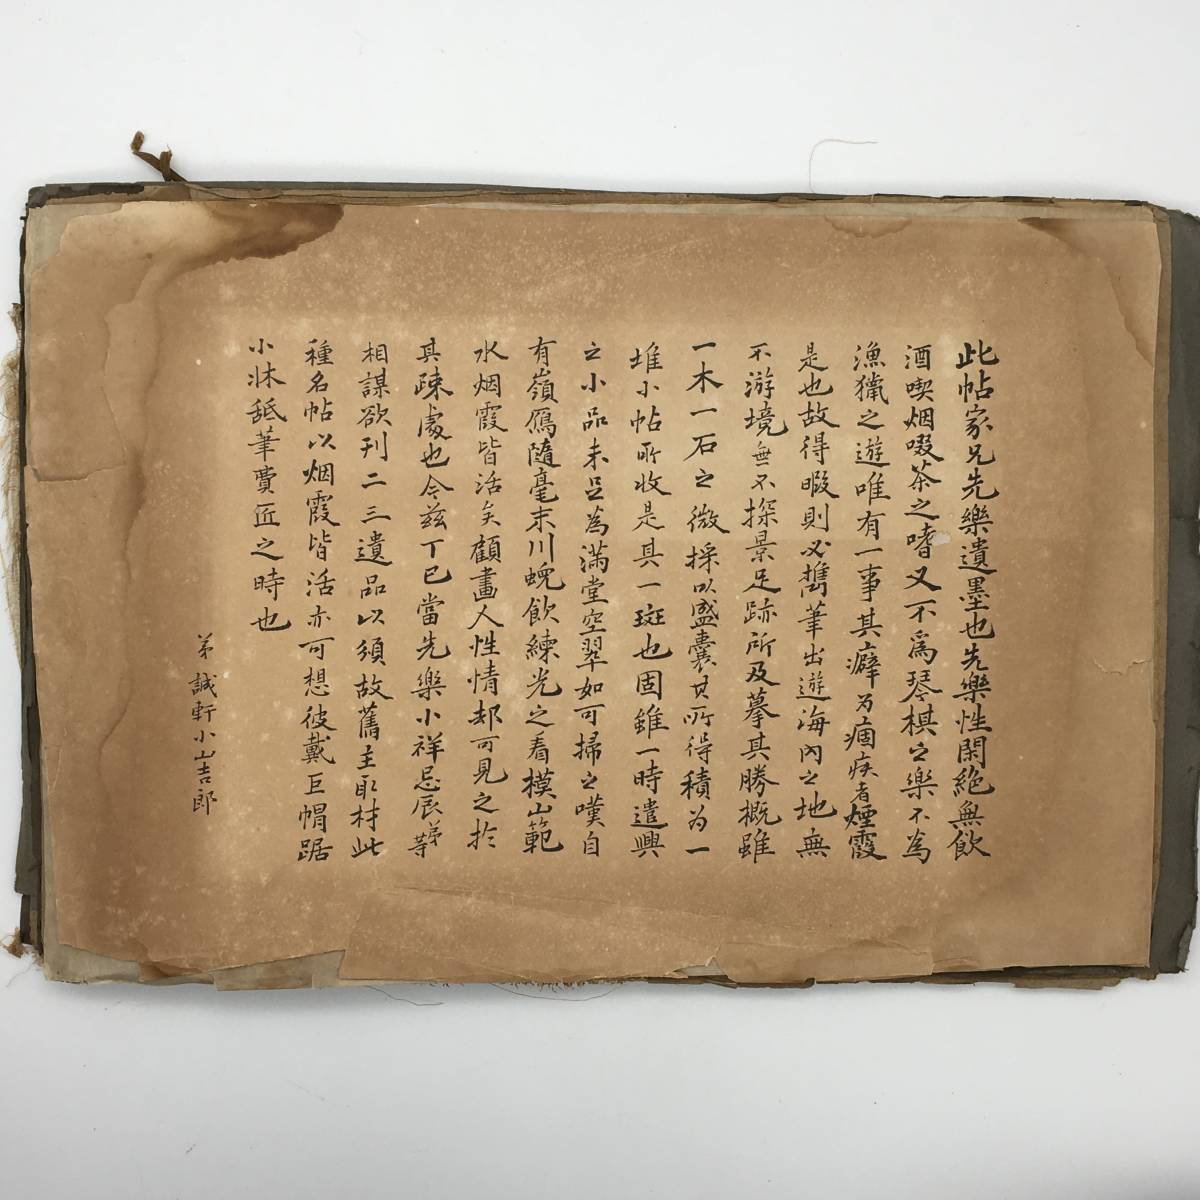 此帖家兄先樂遺墨也先樂性閑絶無飲
酒喫烟啜茶之嗜又不爲琴棋之樂不為
漁獵之遊唯有一事其癖为痼疾者煙霞
是也故得暇則必携筆出遊海内之地無
不游境無不探景足跡所及摹其勝概雖
一木一石之微採以盛嚢其所得積为一
堆小帖所收是其一斑也固雖一時遣興
之小品未足為満堂空翠如可掃之嘆自
有嶺鴈隨毫末川蜺飲練光之看模山範
水烟霞皆活矣顧畫人性情却可見之於
其疎處也今茲丁巳當先樂小祥忌辰弟等
相謀欲刊二三遺品以須故舊主取材此
種名帖以烟霞皆活亦可想彼戴巨帽踞
小牀舐筆賣匠之時也
弟 誠軒小山吉郎